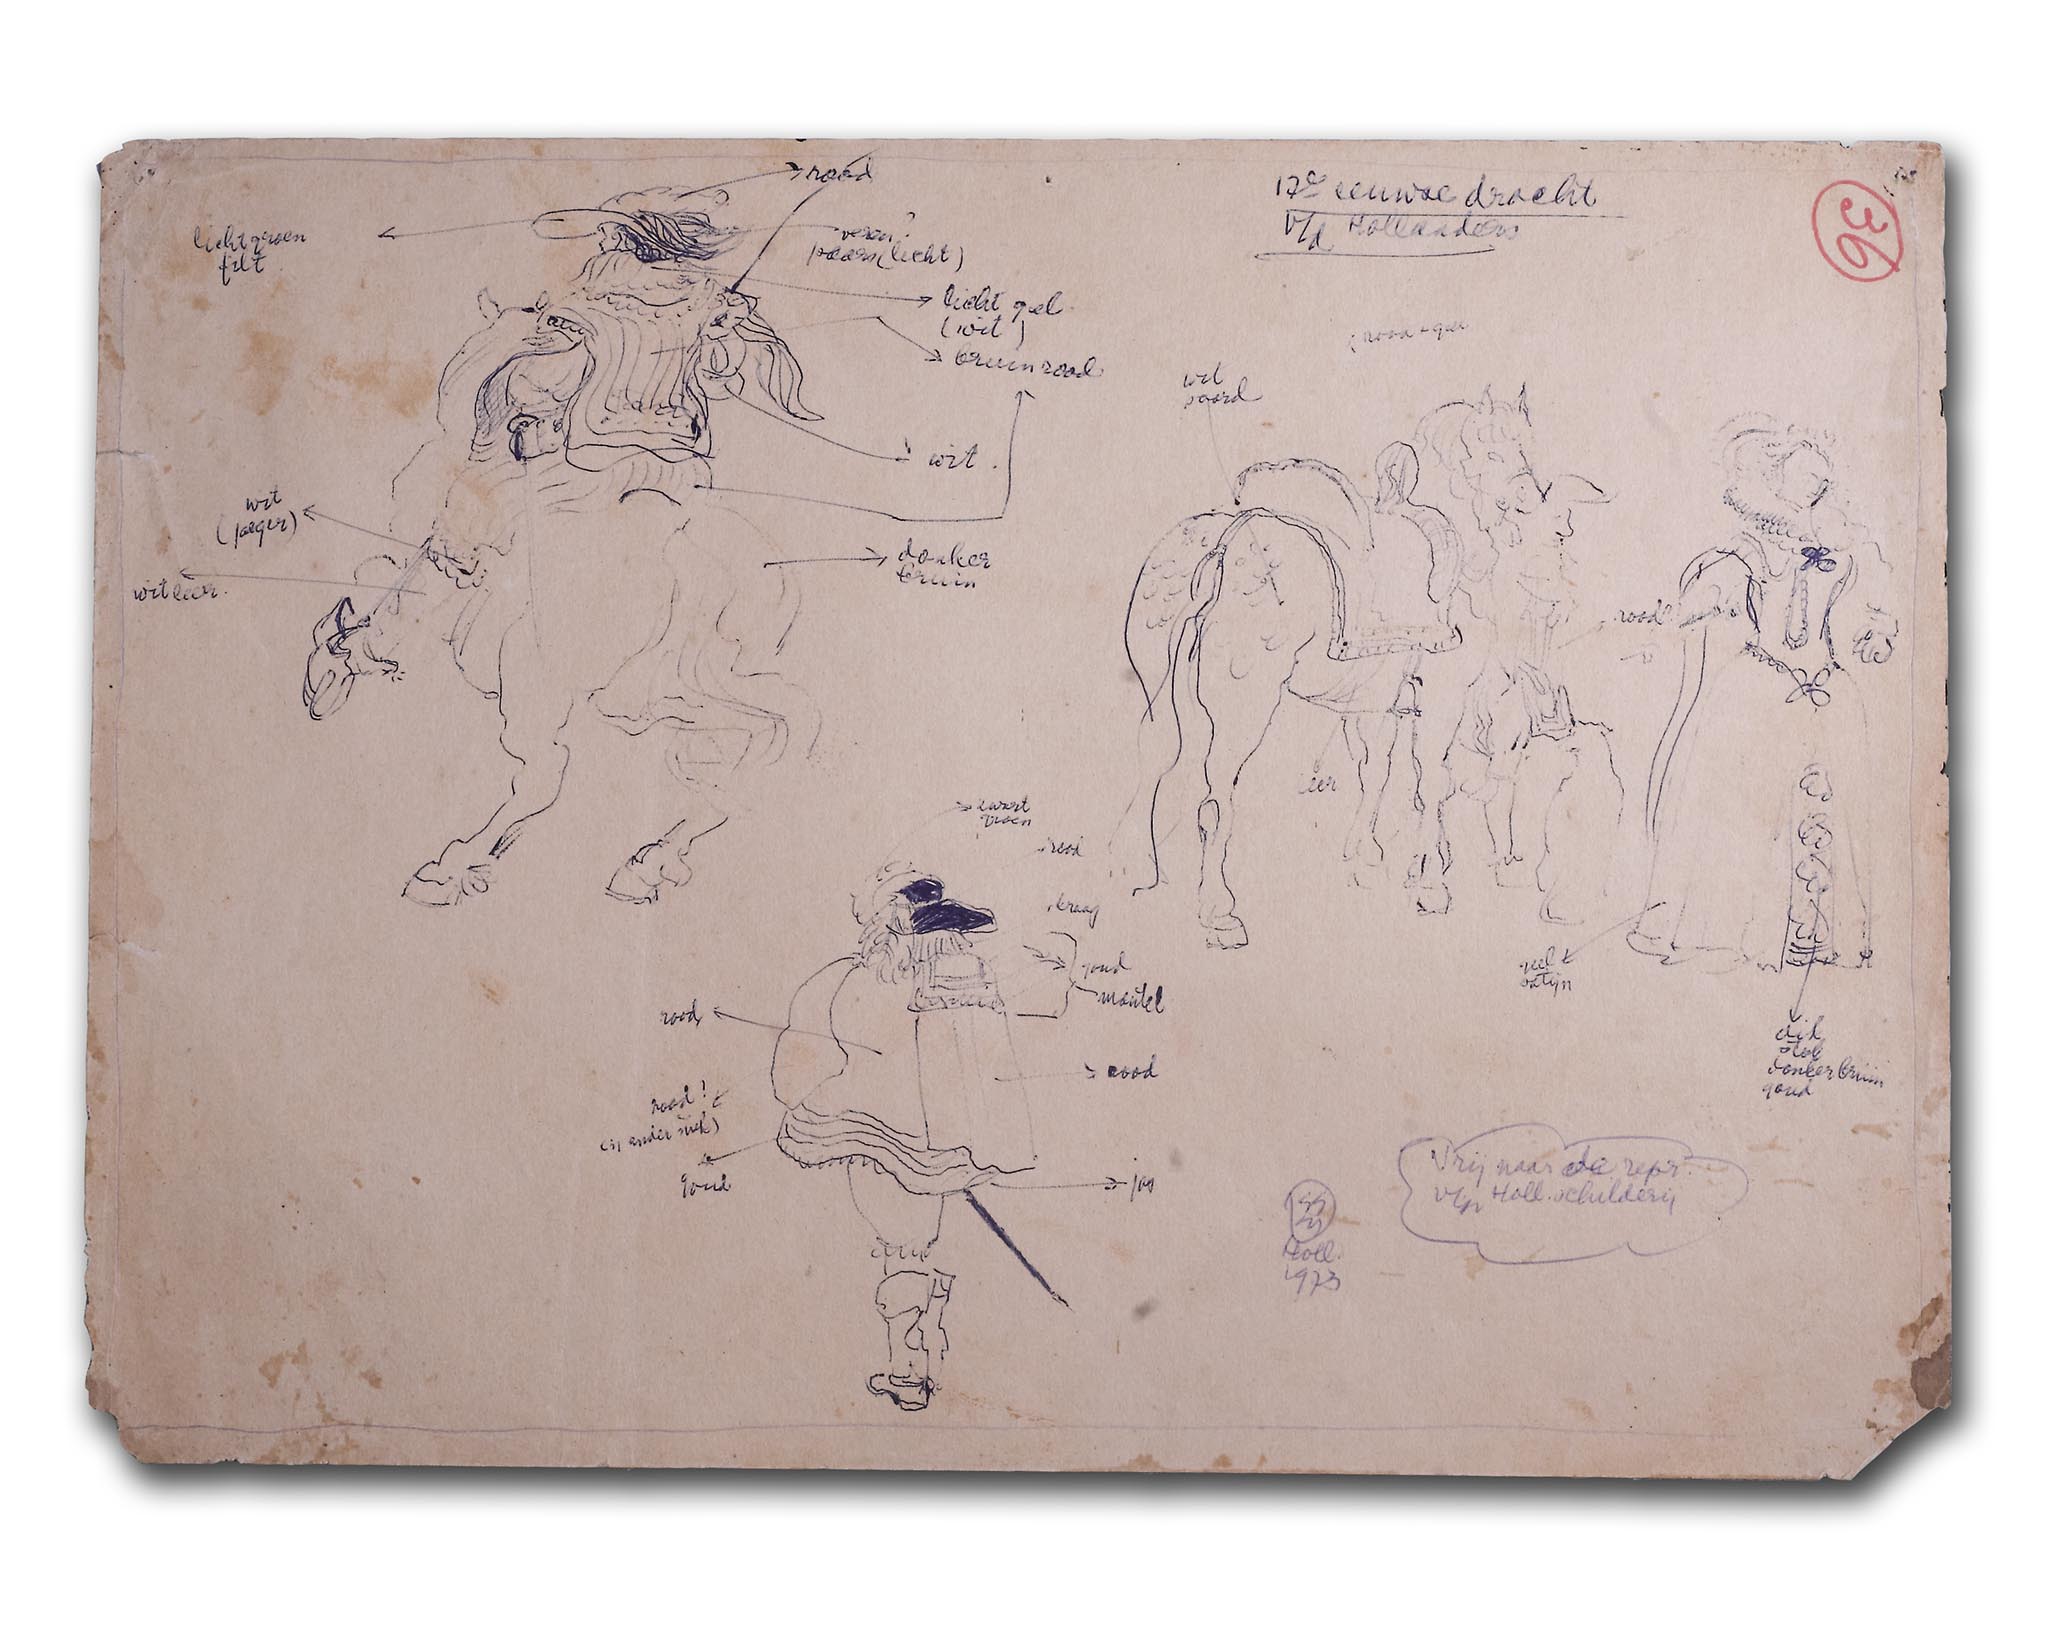 rood
17e eeuwse dracht
v/d Hollanders
36
licht groen
filt
veren?
paars (licht)
licht geel
(wit)
bruin rood
wit
paard
wit
wit
(jaeger)
wit leer
donker
bruin
rood?
leer
zwart
groen
rood
kraag
goud
mantel
rood
rood
rood!
(in ander stuk)
goud
geel
satijn
dik
stof
donker bruin
goud
Vrij naar de repr.
v/n Holl. schilderij
Holl.
1973